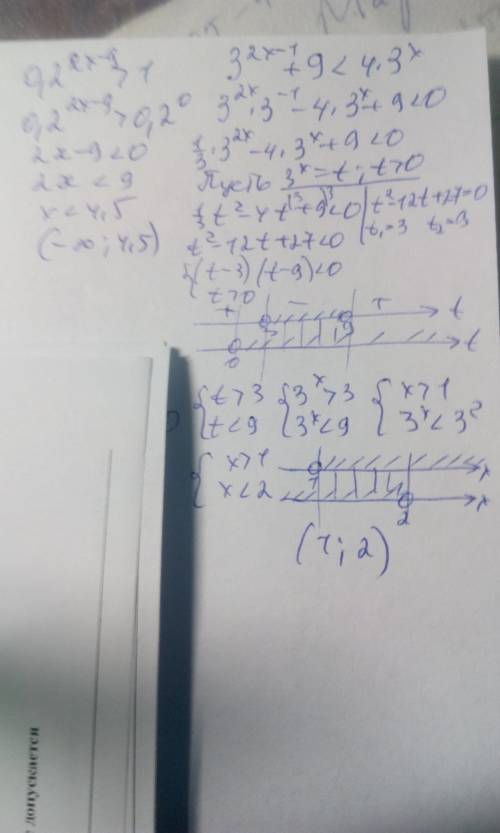 0,2^{2x-9} > 1
0,2^{2x-9} > 0,2^0
2x-9<0
2x<9
x<4,5
(-∞; 4,5)
3^{2x-1}+9<4·3^x
3^{2x}·3^{-1}-4·3^x+9<0
1/3·3^{2x}-4·3^x+9<0
Пусть 3^x=t; t>0
1/3t²-4t+9<0 |·3
t²-12t+27=0
t₁=3 t₂=9
t²-12t+27<0
{(t-3)(t-9)<0
t>0
+ - +
3 9 t
0 t
{t>3 {3^x>3 {x>1
t<9 3^x<9 3^x<3²
{x>1
x<2
1 x
2 x
(1; 2)
допускается